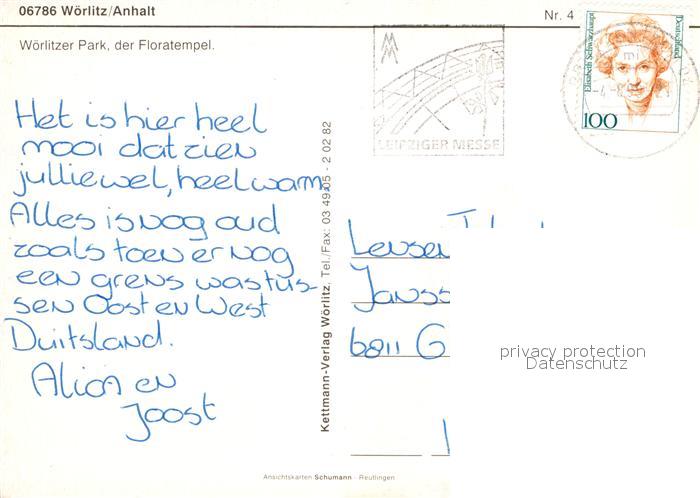 06786 Wörlitz/Anhalt
Nr. 4
Wörlitzer Park, der Floratempel.
Elisabeth Schwarzhaupt
Deutschland
100
LEIPZIGER MESSE
Het is hier heel
mooi dat zien
jullie wel, heel warm.
Alles is nog oud
zoals toen er nog
een grens was tus-
sen Oost en West
Duitsland.
Alica en
Joost
Kettmann-Verlag Wörlitz, Tel./Fax: 03 49 05 - 2 02 82
Janss
6811 G
privacy protection
Datenschutz
Ansichtskarten Schumann · Reutlingen